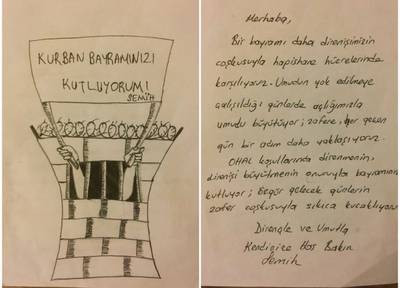 KURBAN BAYRAMINIZI
KUTLUYORUM!
SEMİH
Merhaba,
Bir bayramı daha direnişimizin
coşkusuyla hapishane hücrelerinde
karşılıyoruz. Umudun yok edilmeye
çalışıldığı günlerde açlığımızla
umudu büyütüyor; zafere, her geçen
gün bir adım daha yaklaşıyoruz.
OHAL koşullarında direnmenin,
direnişi büyütmenin onuruyla bayramınızı
kutluyor; özgür gelecek günlerin
zafer coşkusuyla sıkıca kucaklıyorum.
Dirençle ve Umutla
Kendinize Hoş Bakın
Semih